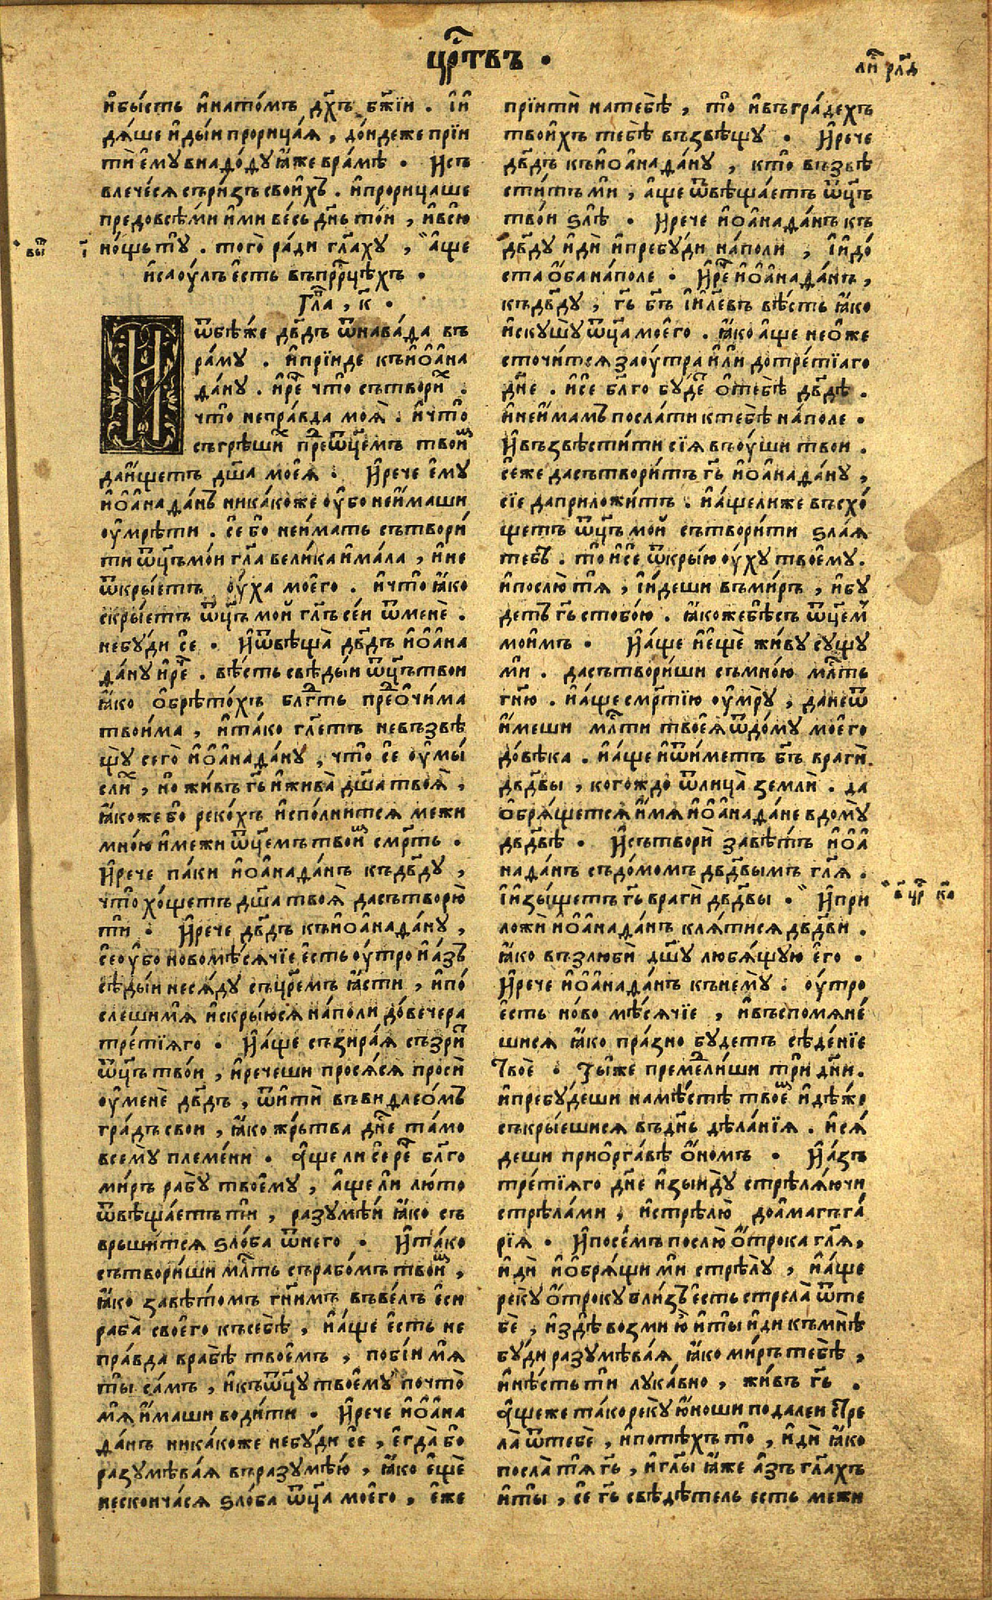 цр҃твъ .
ли҃ рл҃д
и҆бы́сть и҆нато́мъ дх҃ъ бж҃їи . і҆и҆
дѧ́ше и҆ды́и прорица́ѧ , до́ндеже прїи
тѝ є҆му внаѧ҆до́ду ꙗ҆́же вра́мѣ . И҆съ
влече́сѧ съри́зъ свои́хъ . и҆прорица́ше
предовсѣ́ми и҆́ми ве́сь дн҃ь то́и , и҆всю̀
но́щь тꙋ̀ . того̀ ра́ди гл҃аху , а҆́ще
и҆сао́улъ є҆́сть въпрⷪ҇рцѣхъ .
Гл҃а , к҃ .
ѿбѣ́же дв҃дъ ѿнава́да въ
ра́му . и҆прїи́де къи҆ѻ҆на
да́ну . и҆ре҃ что̀ сътвори́х .
что̀ непра́вда моѧ̀ . и҆что̀
съгрѣши́х преⷣѿц҃емъ твои́м
даи҆́щетъ дш҃а моеѧ̀ . И҆рече є҆му̀
и҆ѻ҆наѧ҆да́нъ ника́коже оу҆бо неи҆́маши
оу҆мрѣ́ти . се́ бо неи҆́мать сътвори́
ти ѿц҃ъ мо́и гл҃а вели́ка и҆ма́ла , и҆не
ѿкры́етъ оу҆́ха моего̀ . и҆что̀ ꙗ҆́ко
скры́етъ ѿц҃ъ мо́й гл҃ъ се́и ѿменѐ .
небу́ди сѐ . И҆ѿвѣща̀ дв҃дъ и҆ѻ҆на
да́ну и҆ре҃ . вѣ́сть свѣ́дыи ѿц҃ъ твои
ꙗ҆́ко ѻ҆брѣто́хъ блгⷣть преⷣѻ҆чи́ма
твои́ма , и҆та́ко гл҃етъ невъзвѣ
щу̀ сего̀ и҆ѻ҆наѧ҆да́ну , что̀ сѐ оу҆мы́
сли́х , но жи́въ гь҃ и҆жива̀ дш҃а твоѧ̀ ,
ꙗ҆́коже бо реко́хъ и҆спо́лнитсѧ межи
мно́ю и҆межи ѿц҃емъ твои́м смр҃ть .
И҆рече па́ки и҆ѻ҆наѧ҆да́нъ къдв҃ду ,
что̀ хо́щетъ дш҃а твоѧ̀ дасътворю̀
ти . И҆рече дв҃дъ къи҆ѻ҆наѧ҆да́ну ,
се́ оу҆бо новомѣ́сѧчїе є҆́сть оу҆́тро и҆а҆́зъ
сѣ́дыи несѧ́ду съцр҃емъ ꙗ҆́сти , и҆по́
слеши́мѧ и҆скры́юсѧ на́поли до́вечера
тре́тїѧго . И҆а҆́ще съзира́ѧ съзри́т
ѿц҃ъ тво́и , и҆речеши просѧ́сѧ просѝ
оу҆менѐ дв҃дъ , ѿитѝ въвиѧ҆леѻ҆мъ
гра́дъ сво́и , ꙗ҆́ко же́ртва дн҃е та́мо
всему̀ племе́ни . а҆́ще ли се́ ре҃ бл҃го
ми́ръ рабу̀ твоему̀ , а҆́ще ли лю́то
ѿвѣща́етъ ти , разумѣ́и ꙗ҆́ко съ
врьши́тсѧ ѕло́ба ѿнего . И҆та́ко
сътвори́ши млⷭ҇ть сърабо́мъ твои́м ,
ꙗ҆́ко завѣ́томъ гн҃имъ въве́лъ є҆си
раба̀ своего̀ късебѣ̀ , и҆а҆́ще є҆́сть не
пра́вда врабѣ̀ твое́мъ , поби́и мѧ
ты̀ са́мъ , и҆къѿц҃у твоему̀ почто̀
мѧ и҆́маши води́ти . И҆рече и҆ѻ҆на
да́нъ ника́коже небу́ди сѐ , є҆гда̀ бо
разумѣва́ѧ въразумѣ́ю , ꙗ҆́ко є҆щѐ
несконча́сѧ ѕло́ба ѿц҃а моего̀ , є҆́же
прїитѝ натебѣ̀ , то̀ и҆въгра́дехъ
твои́хъ тебѣ̀ възвѣщу̀ . И҆рече
дв҃дъ къи҆ѻ҆наѧ҆да́ну , кто̀ възвѣ
сти́тъ ми , а҆́ще ѿвѣща́етъ ѿц҃ъ
тво́и ѕлѣ̀ . И҆рече и҆ѻ҆наѧ҆да́нъ къ
дв҃ду и҆дѝ и҆пребу́ди на́поли , і҆и҆до́
ста ѻ҆́ба на́поле . И҆ре҃ и҆ѻ҆наѧ҆да́нъ ,
къдв҃ду , гь҃ бг҃ъ і҆и҃левъ вѣ́сть ꙗ҆́ко
и҆скушу ѿц҃а моего̀ . ꙗ҆́ко а҆́ще неѻ҆же
сточи́тсѧ зао́утра и҆́ли дотре́тїаго
дн҃е . и҆се бл҃го бу́деⷮ ѻ҆тебѣ̀ дв҃дѣ .
и҆неи҆́мамъ посла́ти ктебѣ̀ на́поле .
И҆възвѣсти́ти сїѧ̀ въоу҆́ши твои .
се́же дасътвори́тъ гь҃ и҆ѻ҆наѧ҆да́ну ,
сїѐ даприложи́тъ . и҆а҆́щелиже въсхо́
щетъ ѿц҃ъ мо́й сътвори́ти ѕла́ѧ
тебѣ̀ . то̀ и҆се ѿкры́ю оу҆́ху твоему̀ .
и҆послю́ тѧ , і҆и҆́деши въми́ръ , и҆бу́
детъ гь҃ стобо́ю . ꙗ҆́коже бѣ́съ ѿц҃ем
мои́мъ . И҆а҆́ще и҆є҆щѐ жи́ву су́щу
ми . дасътвори́ши съмно́ю млⷭ҇ть
гн҃ю . и҆а҆́ще сме́ртїю оу҆мру̀ , данеѿ
и҆́меши млⷭ҇ти твоеѧ̀ ѿдо́му моего
до́вѣка . и҆а҆́ще и҆ѿи́метъ бг҃ъ врагѝ
дв҃довы , кого́ждо ѿлица̀ землѝ . да
ѻ҆брѧ́щетсѧ и҆́мѧ и҆ѻ҆наѧ҆да́не вдому̀
дв҃довѣ . И҆сътворѝ завѣ́тъ и҆ѻ҆
наѧ҆да́нъ съдо́момъ дв҃довымъ гл҃ѧ .
і҆и҆зы́щетъ гь҃ врагѝ дв҃довы . И҆при
ложѝ и҆ѻ҆наѧ҆да́нъ клѧ́тисѧ дв҃дви .
ꙗ҆́ко възлюбѝ дш҃у любѧ́щую є҆го̀ .
И҆рече и҆ѻ҆наѧ҆да́нъ кънему̀ . оу҆́тро
є҆́сть но́во мѣ́сѧчїе , и҆въспомѧне́
шисѧ ꙗ҆́ко пра́зно бу́детъ сѣде́нїе
твоѐ . ты́же преме́длиши трѝ дн҃и .
и҆пребу́деши намѣ́стѣ твое́м и҆дѣ́же
съкры́ешисѧ въдн҃ь дѣ́ланїѧ . и҆сѧ́
деши приѻ҆рга́вѣ ѻ҆́номъ . И҆а҆́зъ
тре́тїѧго дн҃е и҆зы́иду стрѣлѧ́ючи
стрѣла́ми , и҆стрѣлю̀ доамагъга́
рїѧ . И҆посе́мъ послю̀ ѻ҆́трока гл҃ѧ ,
и҆дѝ и҆ѻ҆брѧ́щи ми стрѣлу̀ , и҆а҆́ще
реку̀ ѻ҆́троку бли́зъ є҆́сть стрела̀ ѿте
бѐ , и҆здѣ̀ возми ю҆̀ и҆ты̀ и҆ди къмнѣ̀
бу́ди разумѣва́ѧ ꙗ҆́ко ми́ръ тебѣ̀ ,
и҆нѣ́сть ти лука́вно , жи́въ гь҃ .
а҆́щеже та́ко реку̀ ю҆́ноши пода́леи стре
ла̀ ѿтебѐ , и҆поте́хъ то̀ , и҆дѝ ꙗ҆́ко
посла̀ тѧ гь҃ , и҆гл҃ы ꙗ҆́же а҆́зъ гл҃ахъ
и҆ты̀ , се гь҃ свѣдѣ́тель є҆сть межи